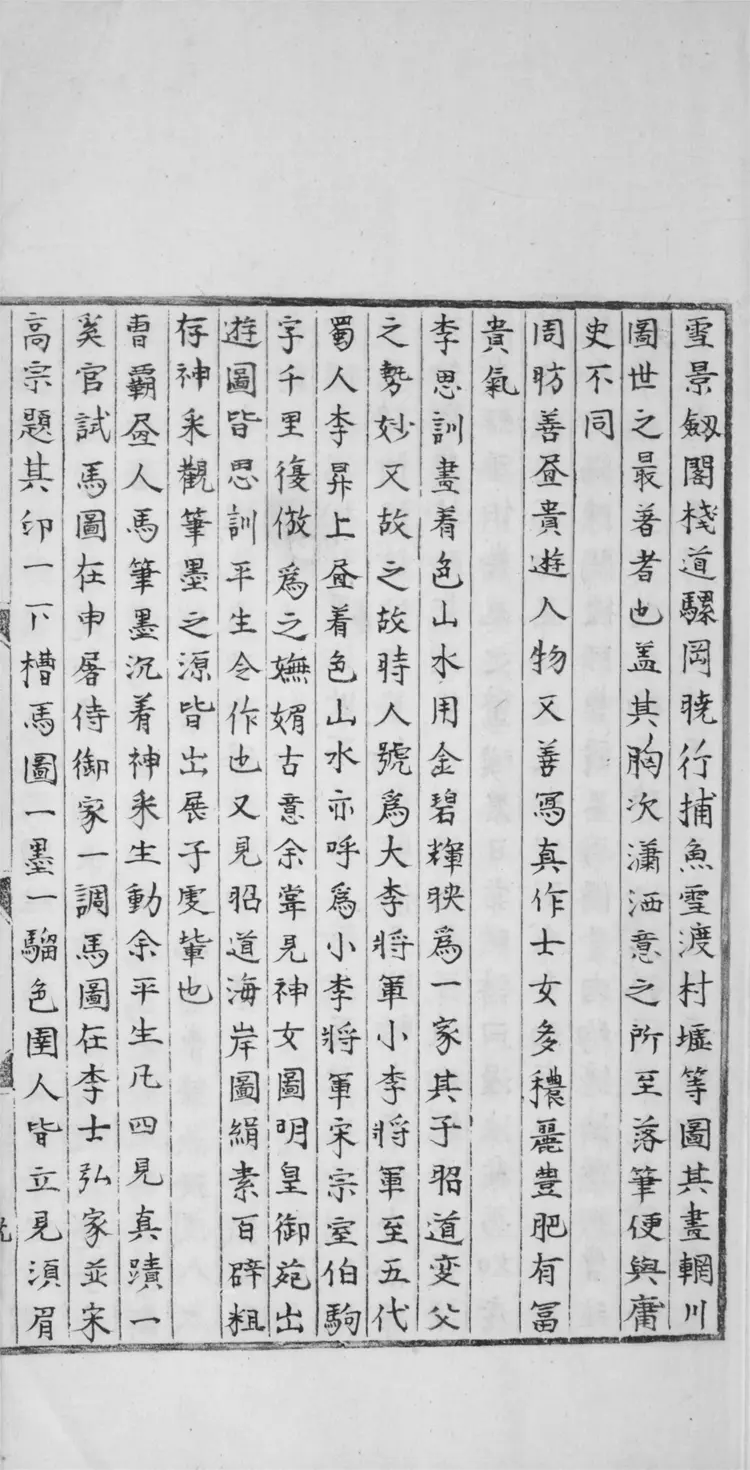 雪景劔閣棧道騾岡曉行捕魚雪渡村墟等圖其畫輞川
圖世之最著者也盖其胸次瀟洒意之所至落筆便與庸
史不同
周昉善𦘕貴遊人物又善冩真作士女多穠麗豊肥有冨
貴氣
李思訓畫着色山水用金碧輝映爲一家其子昭道変父
之勢妙又故之故時人號爲大李將軍小李將軍至五代
蜀人李昇上𦘕着色山水亦呼爲小李將軍宋宗室伯駒
字千里復倣爲之嫵媚古意余甞見神女圖明皇御苑出
遊圖皆思訓平生令作也又見昭道海岸圖絹素百碎粗
存神采觀筆墨之源皆出展子䖍軰也
曹霸𦘕人馬筆墨沉着神采生動余平生凡四見真蹟一
奚官試馬圖在申屠侍御家一調馬圖在李士弘家並宋
高宗題其卬一下槽馬圖一墨一騮色圉人皆立見湏眉